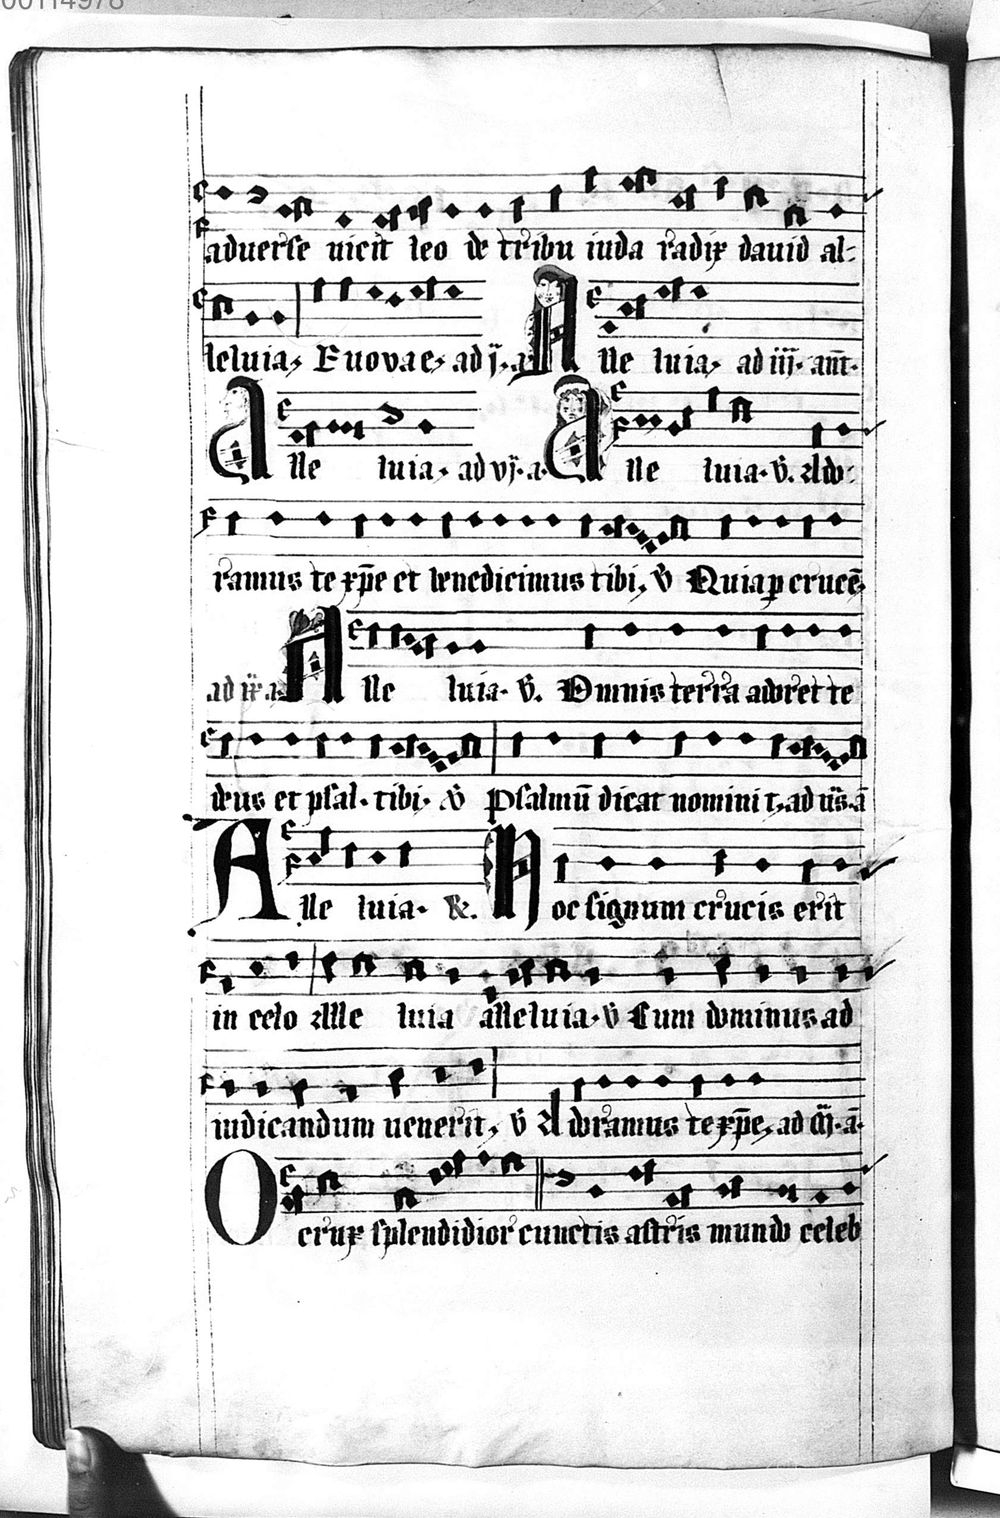 00114978
aduerse uicit leo de tribu iuda radix dauid al-
leluia, Euovae, ad j. a Alle luia, ad iij. ant.
Alle luia, ad vj. a Alle luia. v. Ado-
ramus te xp̄e et benedicimus tibi, v̄ Quia ꝑ crucē
ad ix. a. Alle luia. v̄. Omnis terra adoret te
deus et psal. tibi. v̄ Psalmū dicat nomini t, ad a
Alle luia. &. Hoc signum crucis erit
in celo Alle luia alleluia. v̄ Cum dominus ad
iudicandum uenerit, v̄ Adoramus te xp̄e, ad m̄. ā.
O crux splendidior cunctis astris mundo celeb